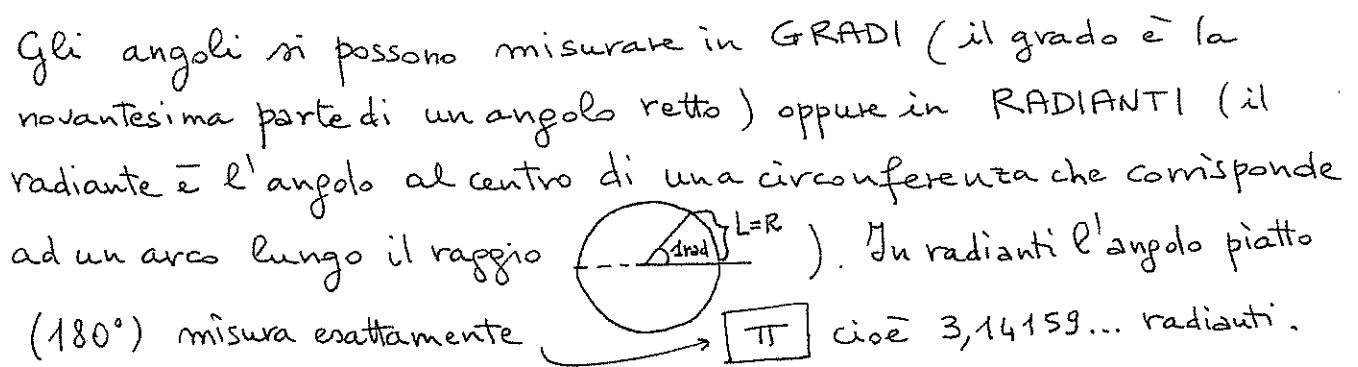 Gli angoli si possono misurare in GRADI (il grado è la
novantesima parte di un angolo retto) oppure in RADIANTI (il
radiante è l'angolo al centro di una circonferenza che corrisponde
ad un arco lungo il raggio 1rad L=R ). In radianti l'angolo piatto
(180°) misura esattamente π cioè 3,14159... radianti.